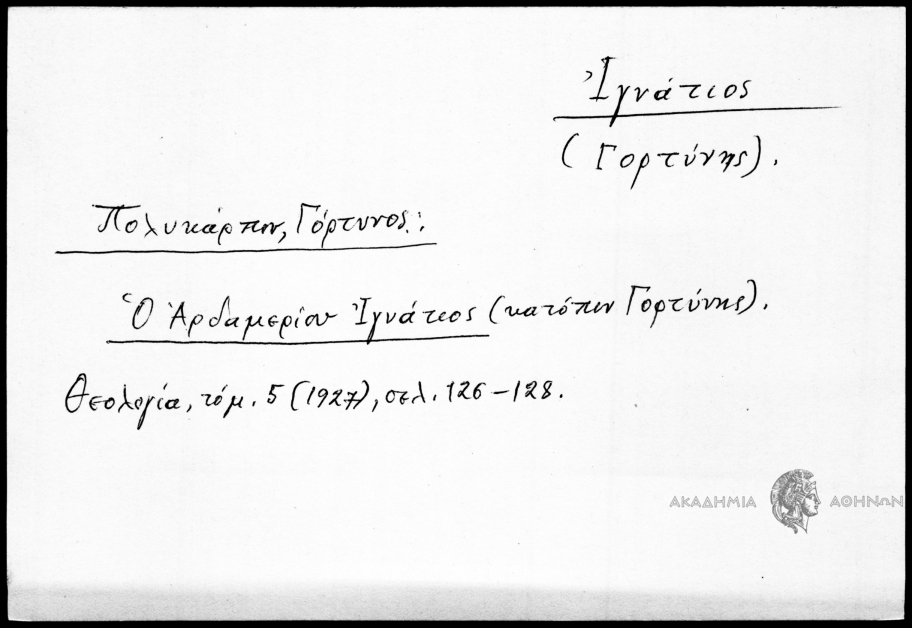 Ἰγνάτιος
(Γορτύνης).
Πολυκάρπου, Γόρτυνος:
Ὁ Ἀρδαμερίου Ἰγνάτιος (κατόπιν Γορτύνης).
Θεολογία, τόμ. 5 (1927), σελ. 126-128.
ΑΚΑΔΗΜΙΑ ΑΘΗΝΩΝ